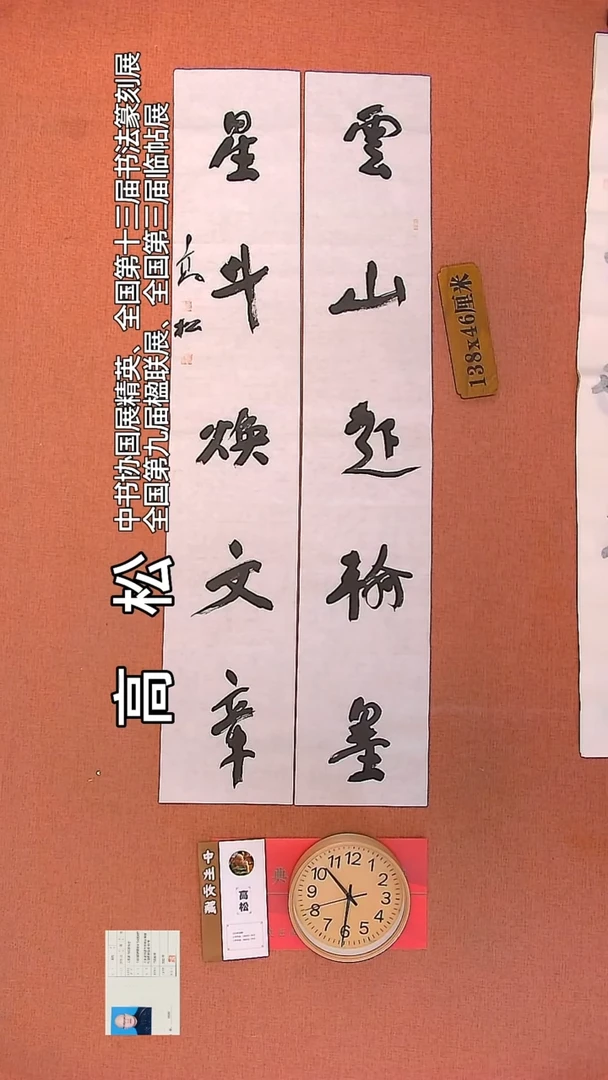 雲山起翰墨
星斗煥文章
高松
中书协国展精英、全国第十三届书法篆刻展
全国第九届楹联展、全国第三届临帖展
高 松
138x46厘米
高松
12
1
2
3
4
5
6
7
8
9
10
11